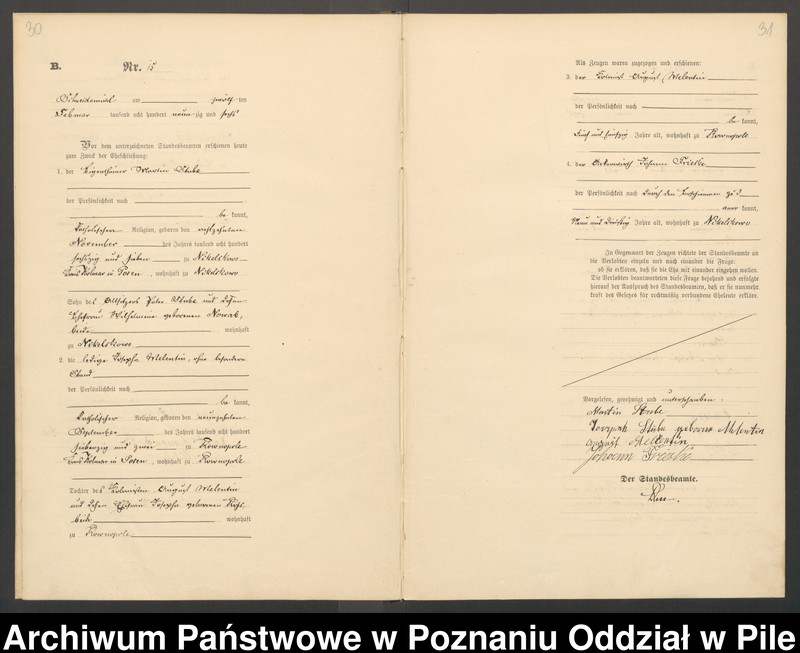 30
B.
Nr. 15
Schneidemühl am zwölften
Februar tausend acht hundert neunzig und sechs
Vor dem unterzeichneten Standesbeamten erschienen heute
zum Zweck der Eheschließung:
1. der Eigenthümer Martin Stube
der Persönlichkeit nach
be kannt,
katholischer Religion, geboren den achtzehnten
November des Jahres tausend acht hundert
sechszig und sieben zu Nikelskowo
Kreis Kolmar in Posen, wohnhaft zu Nikelskowo
Sohn des Altsitzers Stube und dessen
Ehefrau Wilhelmine geborenen Nowak,
beide wohnhaft
zu Nikelskowo
2. die ledige Josepha Melentin, ohne besonderen
Stand
der Persönlichkeit nach
be kannt,
katholischer Religion, geboren den neunzehnten
September des Jahres tausend acht hundert
siebenzig und zwei zu Rownopole
Kreis Kolmar in Posen, wohnhaft zu Rownopole
Tochter des Kolonisten August Melentin
und dessen Ehefrau Josepha geborenen
beide wohnhaft
zu Rownopole
31
Als Zeugen waren zugezogen und erschienen:
3. der Kolonist August Melentin
der Persönlichkeit nach
be kannt,
fünf und fünfzig Jahre alt, wohnhaft zu Rownopole
4. der Ackerwirth Johann Trieske
der Persönlichkeit nach durch den Erschienenen zu 3
aner kannt,
neun und dreißig Jahre alt, wohnhaft zu Nikelskowo
In Gegenwart der Zeugen richtete der Standesbeamte an
die Verlobten einzeln und nach einander die Frage:
ob sie erklären, daß sie die Ehe mit einander eingehen wollen.
Die Verlobten beantworteten diese Frage bejahend und erfolgte
hierauf der Ausspruch des Standesbeamten, daß er sie nunmehr
kraft des Gesetzes für rechtmäßig verbundene Eheleute erkläre.
Vorgelesen, genehmigt und unterschrieben.
Martin Stube
Stube geborene Melentin
August Melentin
Johann Trieske
Der Standesbeamte.
Archiwum Państwowe w Poznaniu Oddział w Pile